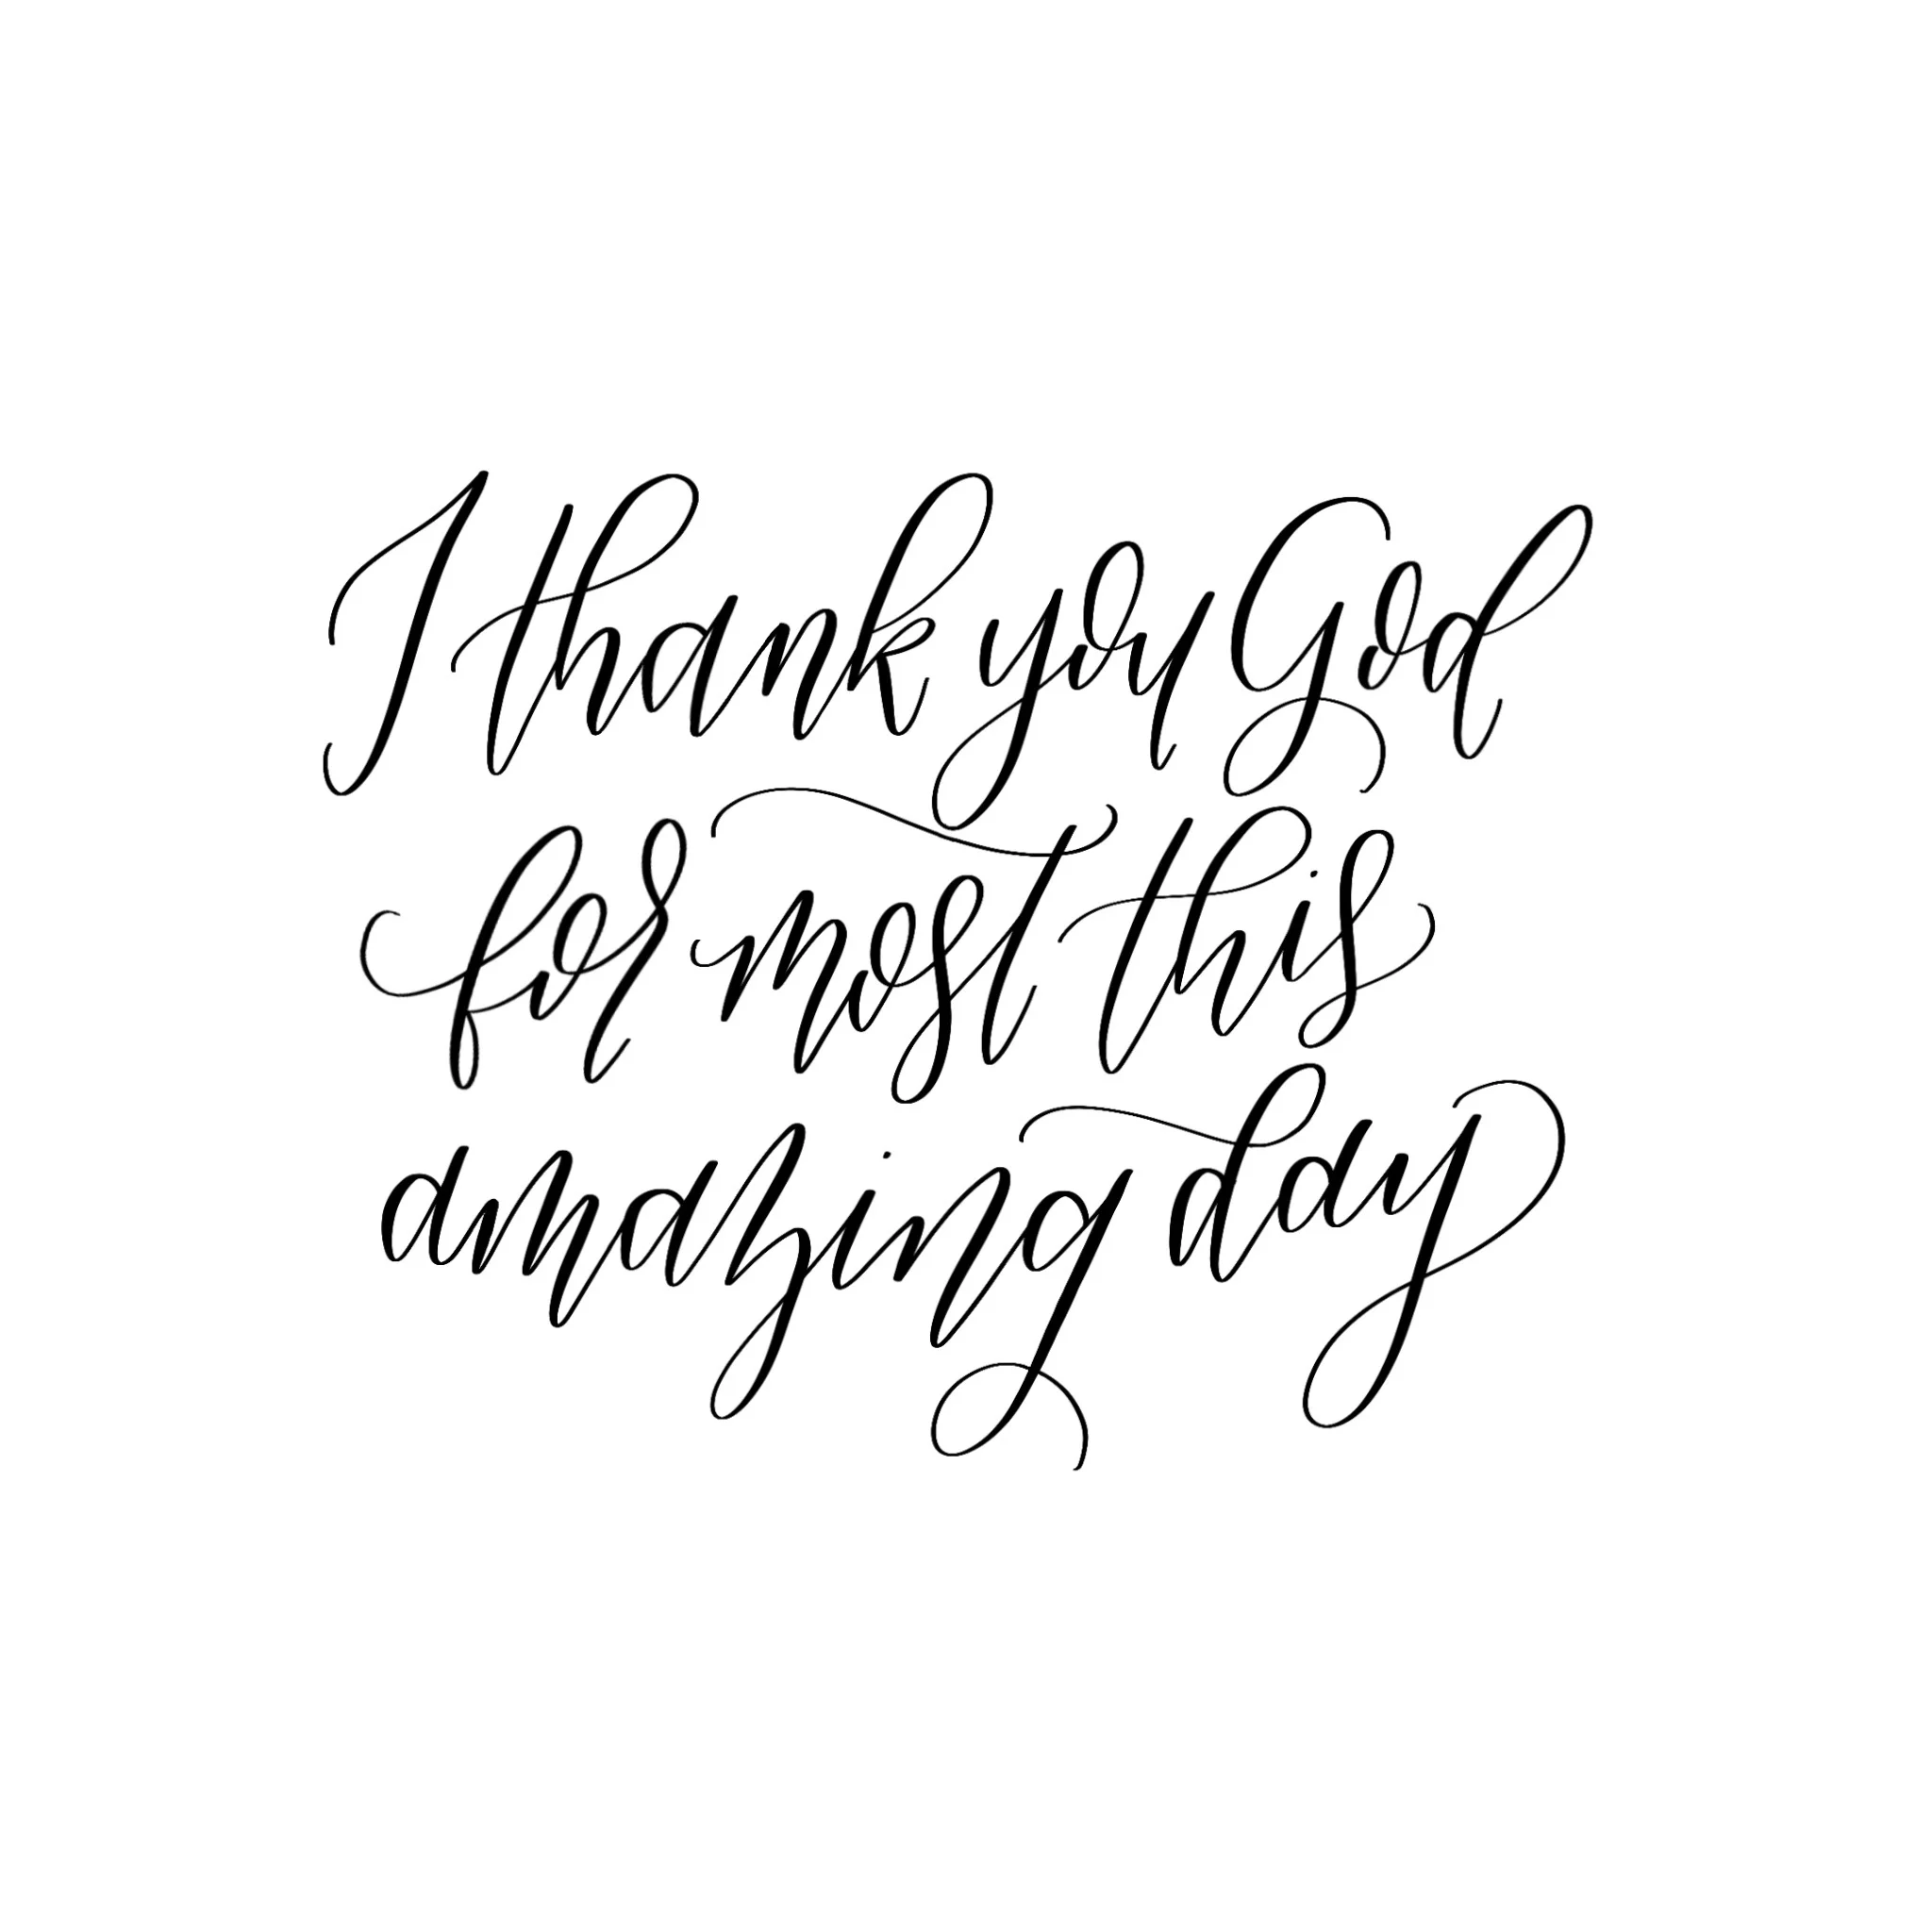 I thank you God
for most this
amazing day